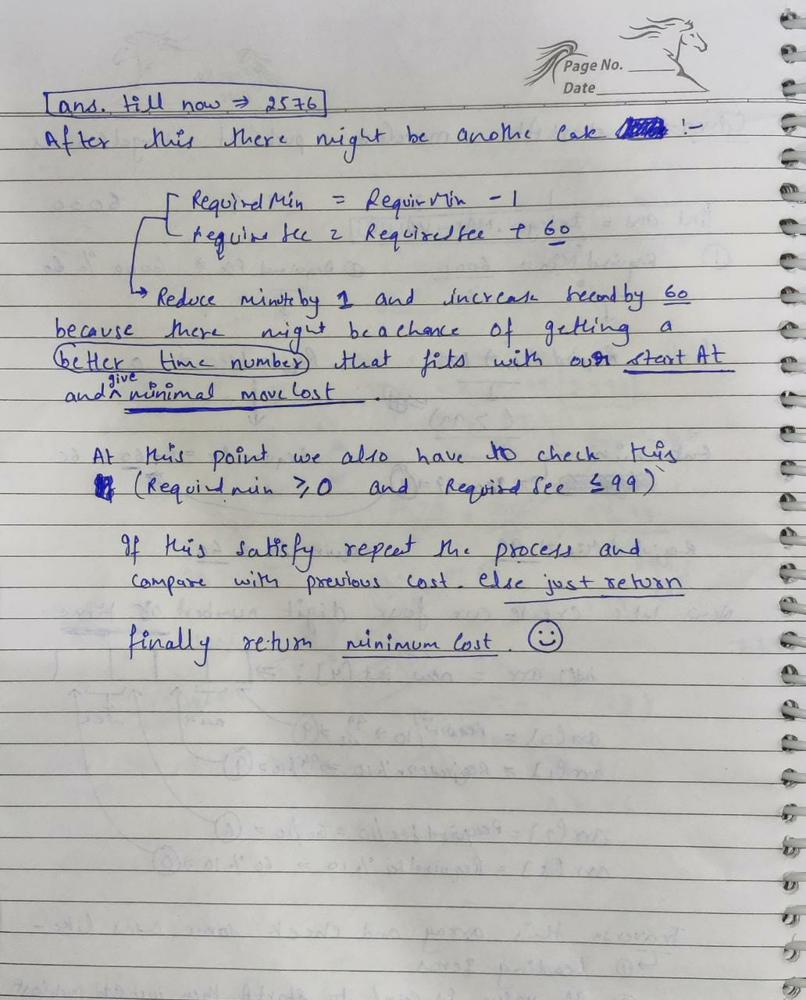 Page No.
Date
ans. till now ⇒ 2576
After this there might be anothe case :-
Required Min = RequirMin - 1
Require sec = Required sec + 60
Reduce minute by 1 and increase second by 60
because there might be a chance of getting a
better time number that fits with our start At
and give minimal move cost .
At this point we also have to check this
(Requird min ≥ 0 and Required sec ≤ 99)
If this satisfy repeat the process and
compare with previous cost. else just return
finally return minimum cost . ☺